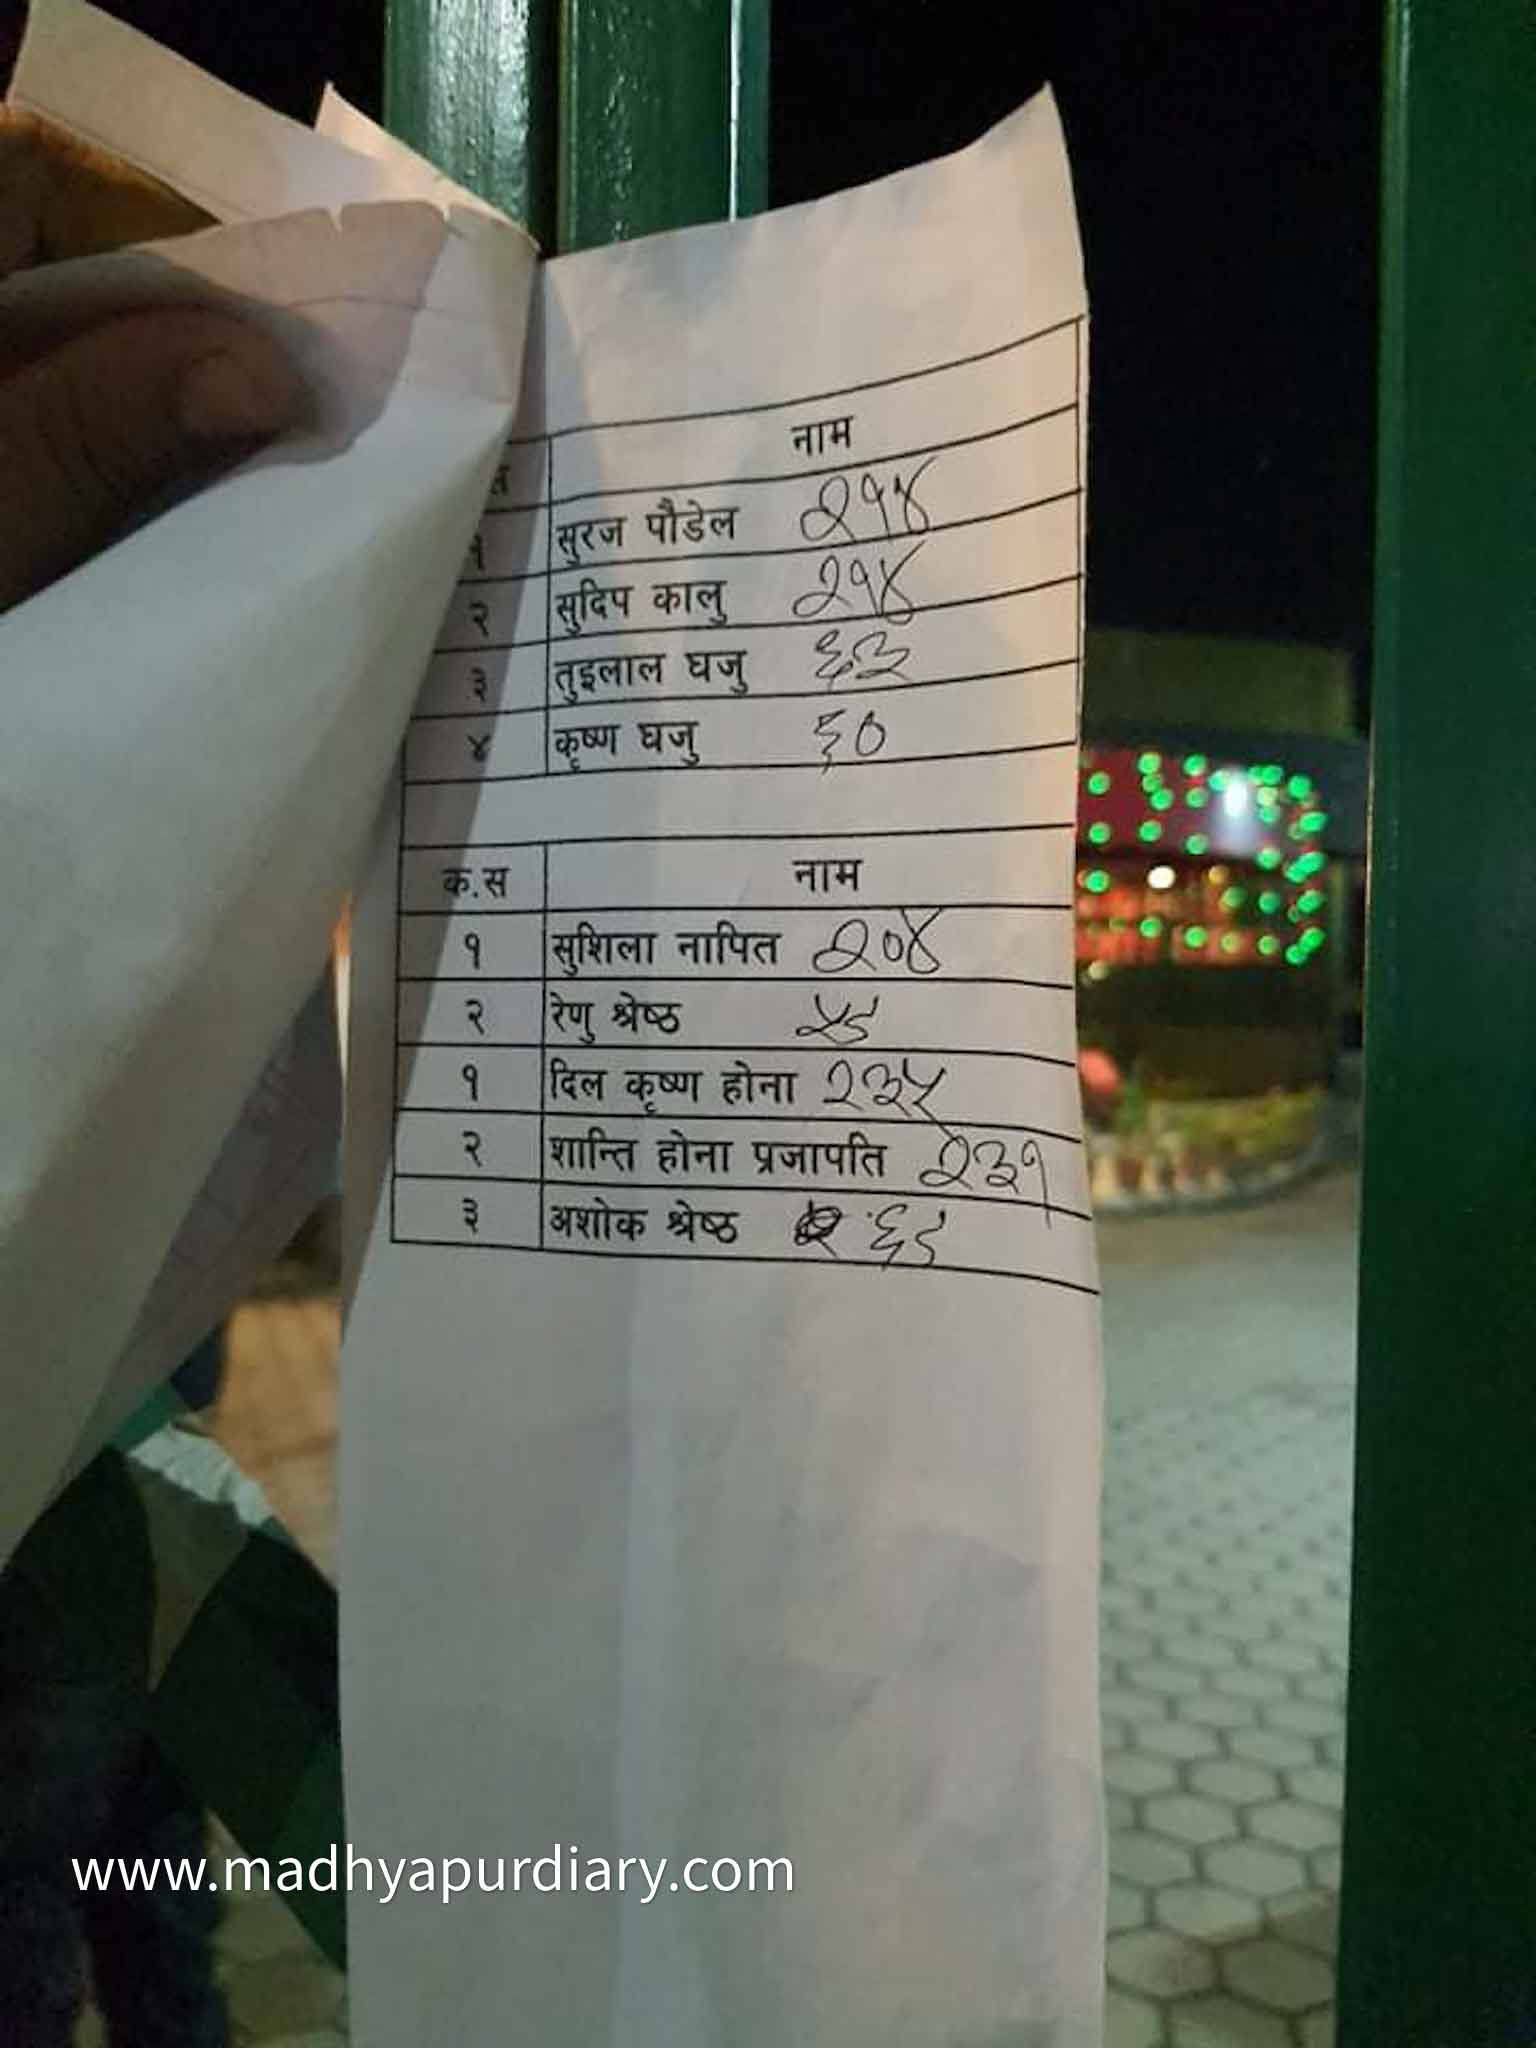 नाम
१ सुरज पौडेल २१४
२ सुदिप कालु २१४
३ तुइलाल घजु ६३
४ कृष्ण घजु ६०
क.स नाम
१ सुशिला नापित २०४
२ रेणु श्रेष्ठ ५८
१ दिल कृष्ण होना २३५
२ शान्ति होना प्रजापति २३१
३ अशोक श्रेष्ठ ६८
www.madhyapurdiary.com